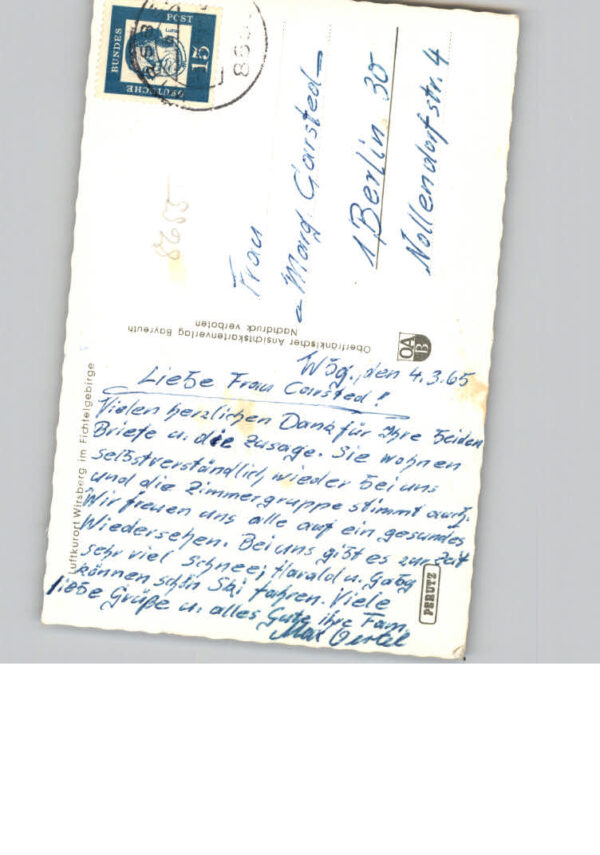 DEUTSCHE
BUNDES
POST
15
8655
Frau
Marg. Carsted
1 Berlin 30
Nollendorfstr. 4
Oberfränkischer Ansichtskartenverlag Bayreuth
Nachdruck verboten
OA
B
Luftkurort Wirsberg im Fichtelgebirge
Wbg., den 4.3.65
Liebe Frau Carsted!
Vielen herzlichen Dank für Ihre beiden
Briefe u. die Zusage. Sie wohnen
selbstverständlich wieder bei uns
und die Zimmergruppe stimmt auch.
Wir freuen uns alle auf ein gesundes
Wiedersehen. Bei uns gibt es zur Zeit
sehr viel Schnee, Harald u. Gaby
können schön Ski fahren. Viele
liebe Grüße u. alles Gute ihre Fam.
Max Oertel
PERUTZ